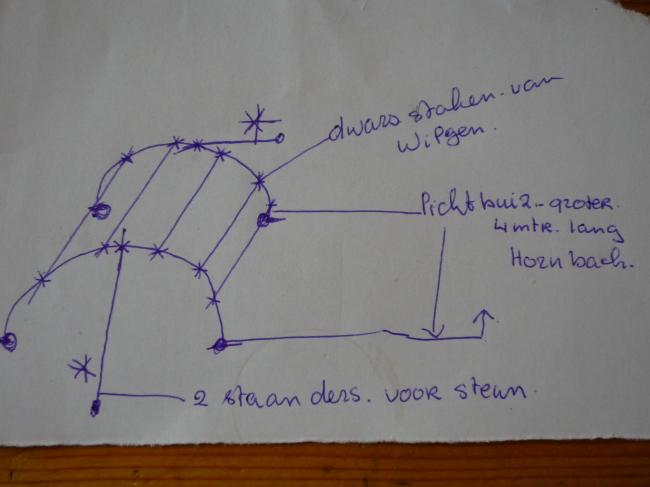 dwars staken van
Wilgen.
Pichtbuiz - groter.
4 mtr. lang
Hornbach.
2 staanders. voor steun.